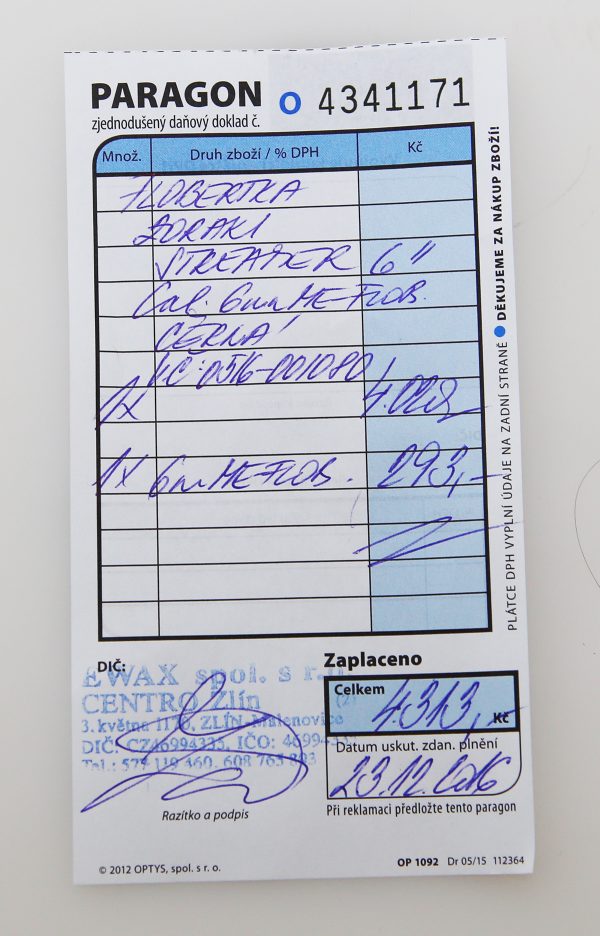 PARAGON O 4341171
zjednodušený daňový doklad č.
Množ. Druh zboží / % DPH Kč
FLOBERTKA
ZORAKI
STREAMER 6"
Cal. 6mm ME-FLOB.
ČERNÁ
VČ: 0516-001080
1x 4.020,-
1x 6mm ME-FLOB. 293,-
PLÁTCE DPH VYPLNÍ ÚDAJE NA ZADNÍ STRANĚ ● DĚKUJEME ZA NÁKUP ZBOŽÍ!
DIČ:
EWAX spol. s r.o.
CENTRO Zlín
3. května 1170, ZLÍN-Malenovice
DIČ: CZ46994335, IČO: 46994335
Tel.: 577 119 460, 608 763 893
Razítko a podpis
Zaplaceno
Celkem 4313,- Kč
Datum uskut. zdan. plnění
23.12.2016
Při reklamaci předložte tento paragon
© 2012 OPTYS, spol. s r. o.
OP 1092 Dr 05/15 112364